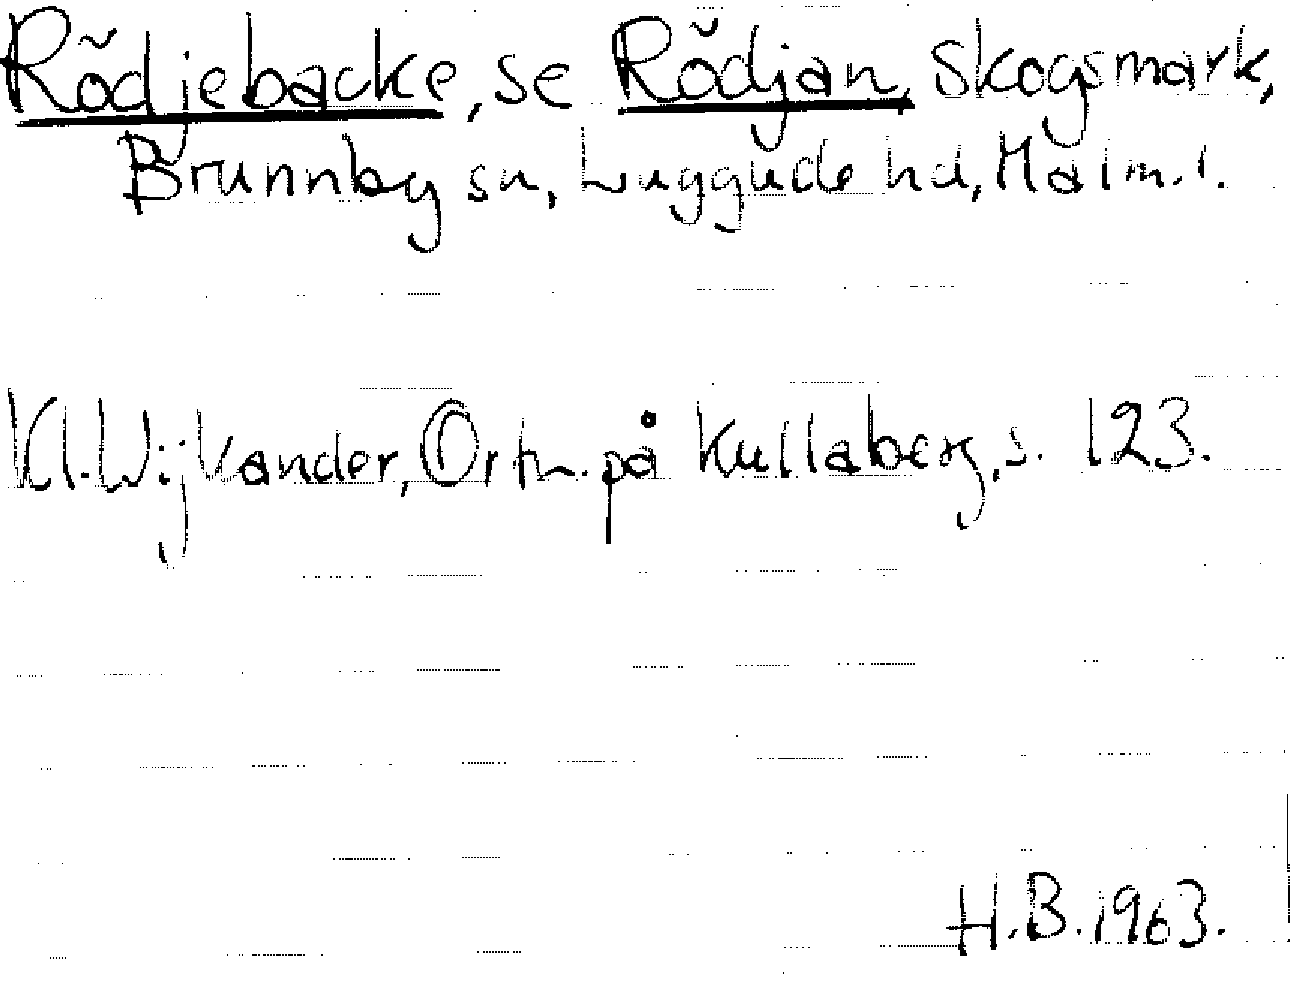 Rödjebacke, se Rödjan, Skogsmark,
Brunnby sn, Luggude hd, Malm. l.
Kl. Wijkander, Ortn. på Kullaberg, s. 123.
H.B. 1963.